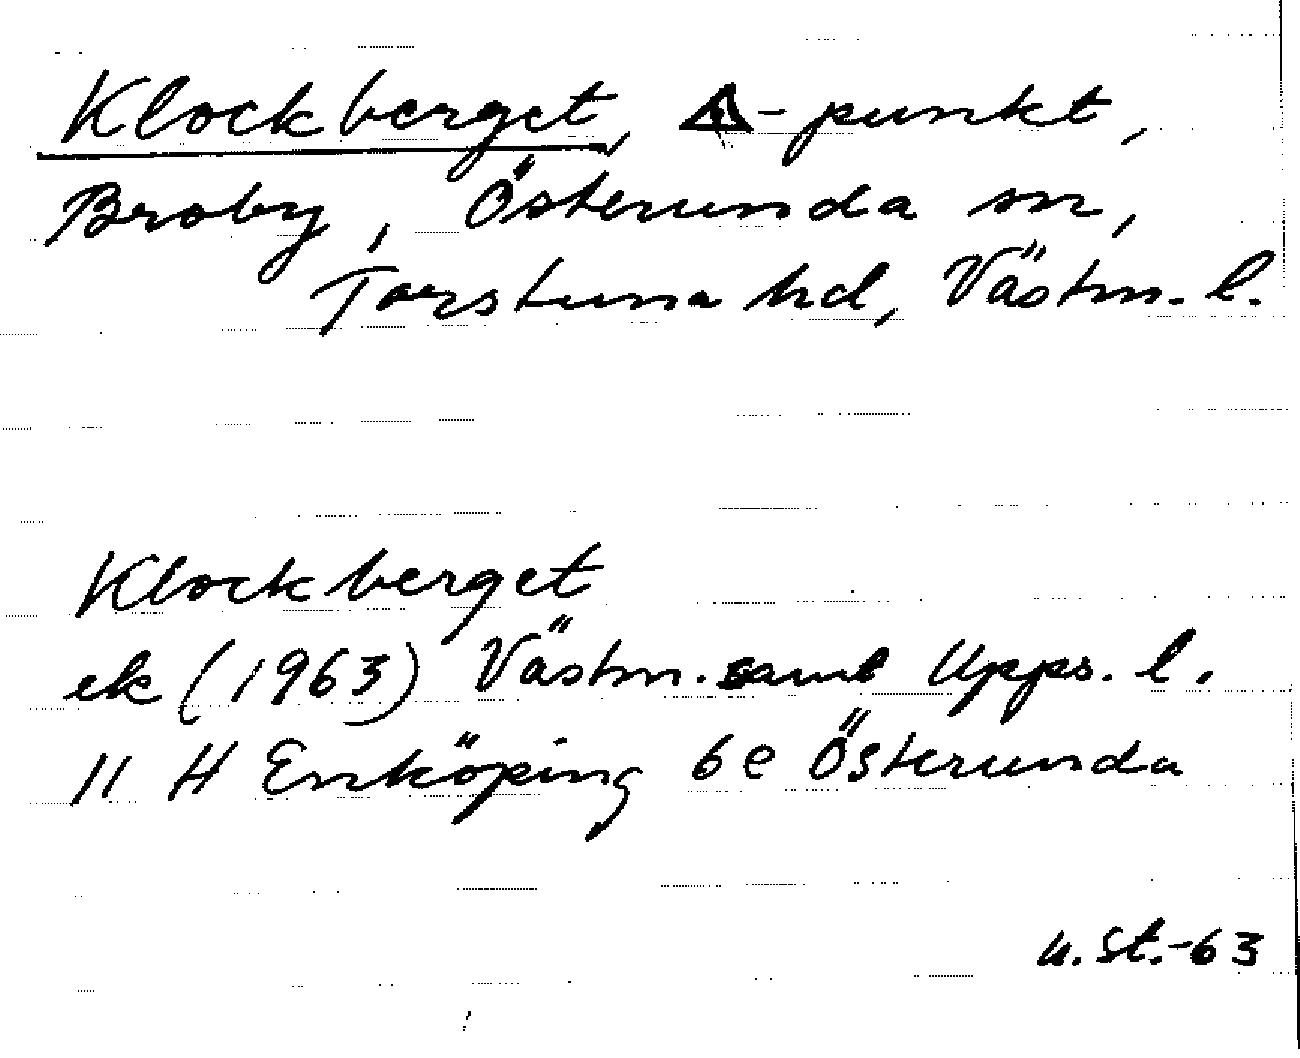 Klockberget, △-punkt,
Broby, Österunda sn,
Torstuna hd, Västm. l.
Klockberget
ek (1963) Västm. samt Upps. l.
11 H Enköping 6e Österunda
u. st.-63